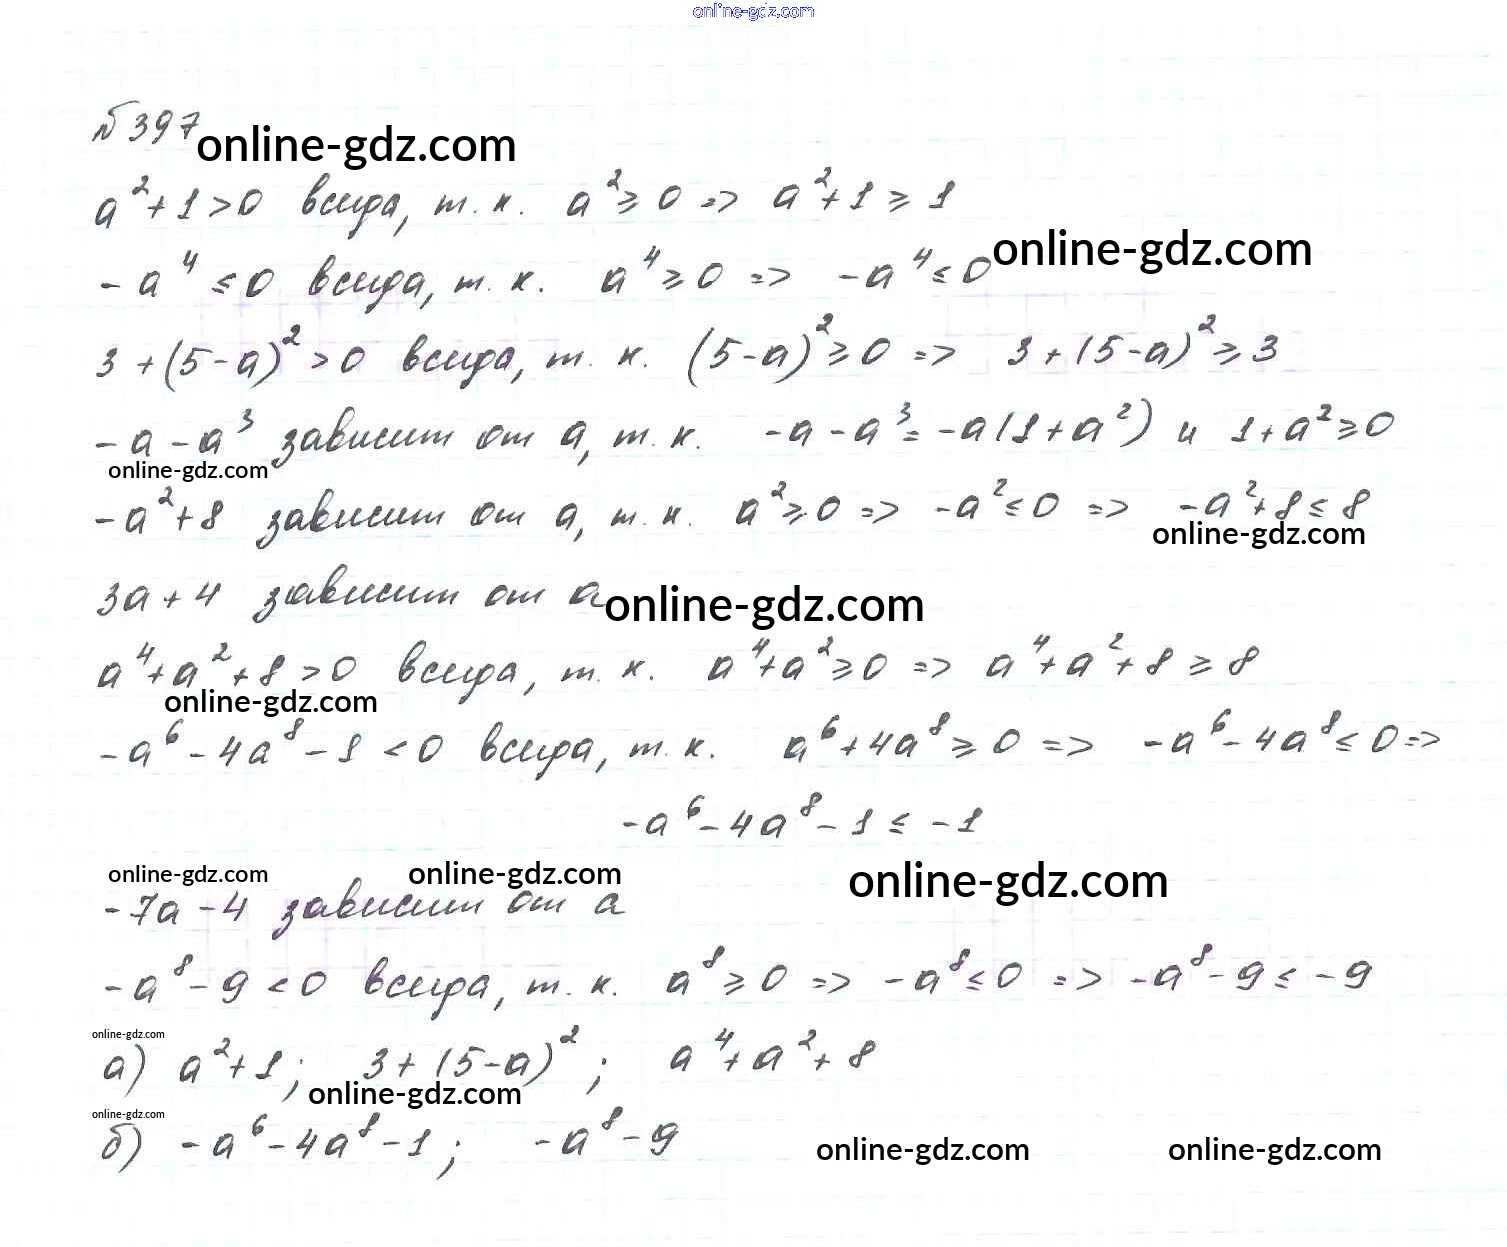 online-gdz.com
№397
online-gdz.com
a²+1>0 всегда, т. к. a²≥0 => a²+1≥1
-a⁴≤0 всегда, т. к. a⁴≥0 => -a⁴≤0
online-gdz.com
3+(5-a)²>0 всегда, т. к. (5-a)²≥0 => 3+(5-a)²≥3
-a-a³ зависит от a, т. к. -a-a³=-a(1+a²) и 1+a²≥0
online-gdz.com
-a²+8 зависит от a, т. к. a²≥0 => -a²≤0 => -a²+8≤8
online-gdz.com
3a+4 зависит от a
online-gdz.com
a⁴+a²+8>0 всегда, т. к. a⁴+a²≥0 => a⁴+a²+8≥8
online-gdz.com
-a⁶-4a⁸-1<0 всегда, т. к. a⁶+4a⁸≥0 => -a⁶-4a⁸≤0 =>
-a⁶-4a⁸-1≤-1
online-gdz.com online-gdz.com online-gdz.com
-7a-4 зависит от a
-a⁸-9<0 всегда, т. к. a⁸≥0 => -a⁸≤0 => -a⁸-9≤-9
online-gdz.com
а) a²+1; 3+(5-a)²; a⁴+a²+8
online-gdz.com
online-gdz.com
б) -a⁶-4a⁸-1; -a⁸-9
online-gdz.com online-gdz.com